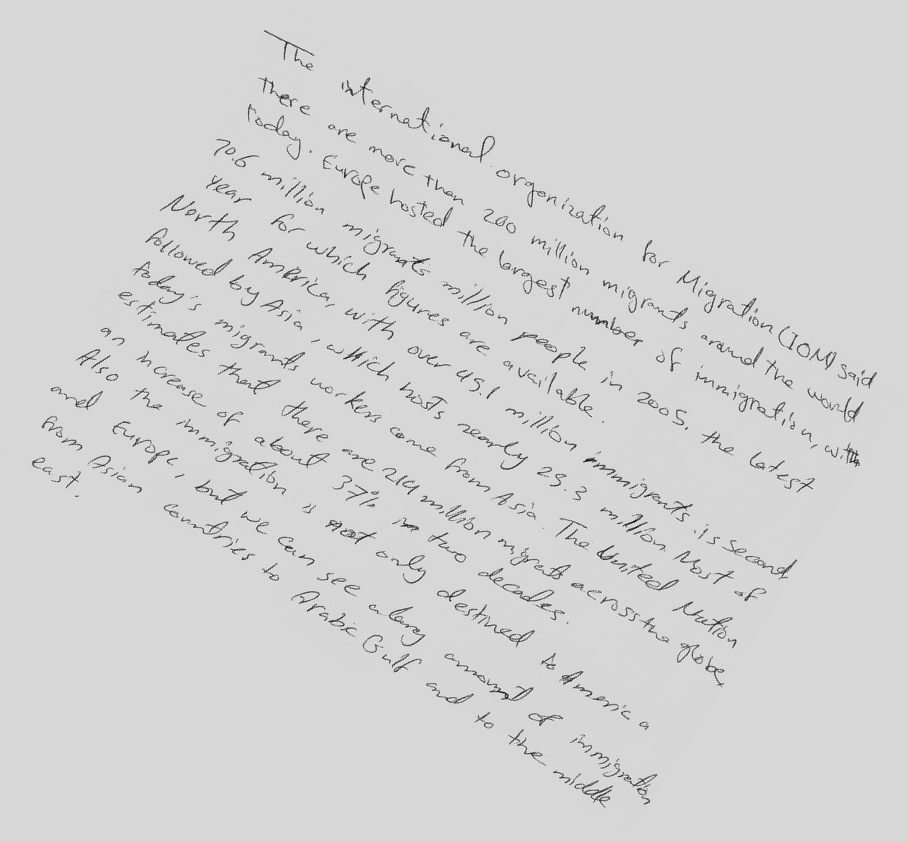 The international organization for Migration (IOM) said
there are more than 200 million migrants around the world
today. Europe hosted the largest number of immigration, with
70.6 million migrants million people in 2005, the latest
year for which figures are available.
North America, with over 45.1 million immigrants is second
followed by Asia, which hosts nearly 25.3 million. Most of
today's migrants workers come from Asia. The United Nation
estimates that there are 214 million migrants across the globe,
an increase of about 37% in two decades.
Also the immigration is not only destined to America a
and Europe, but we can see alarg amount of immigration
from Asian countries to Arabic Gulf and to the middle
east.